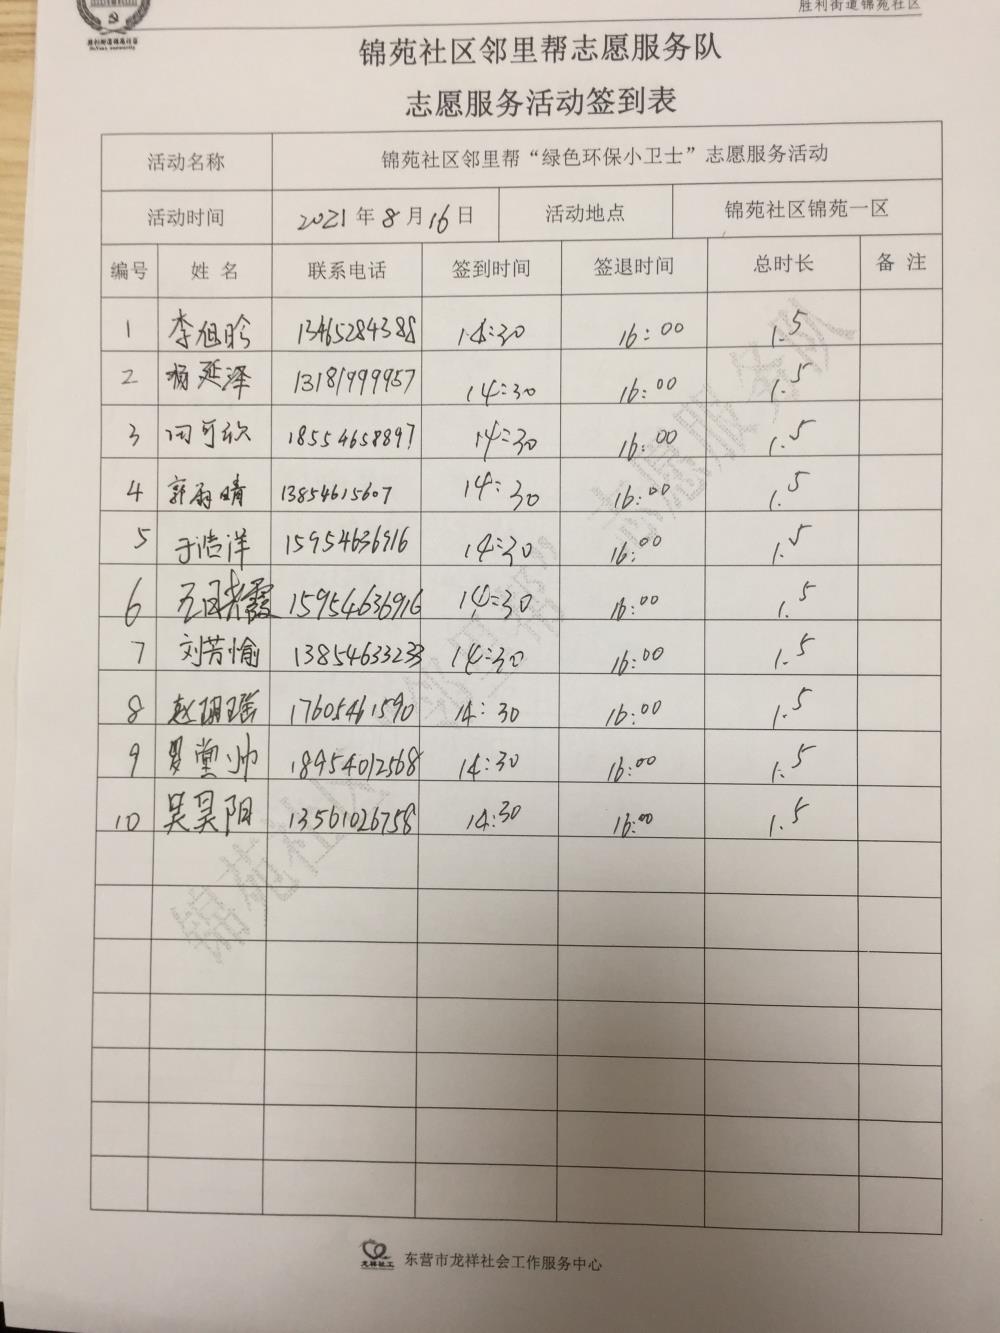 胜利街道锦苑社区
锦苑社区邻里帮志愿服务队
志愿服务活动签到表
活动名称 锦苑社区邻里帮“绿色环保小卫士”志愿服务活动
活动时间 2021年8月16日 活动地点 锦苑社区锦苑一区
编号 姓 名 联系电话 签到时间 签退时间 总时长 备 注
1 李旭昤 13465284388 14:30 16:00 1.5
2 杨延泽 13181999957 14:30 16:00 1.5
3 18554658897 14:30 16:00 1.5
4 郭雨晴 13854615607 14:30 16:00 1.5
5 于浩洋 15954636916 14:30 16:00 1.5
6 15954636916 14:30 16:00 1.5
7 刘芳愉 13854633233 14:30 16:00 1.5
8 赵玥瑶 17605461590 14:30 16:00 1.5
9 18954012568 14:30 16:00 1.5
10 吴昊阳 13561026758 14:30 16:00 1.5
锦苑社区“邻里帮”志愿服务队
龙祥社工 东营市龙祥社会工作服务中心